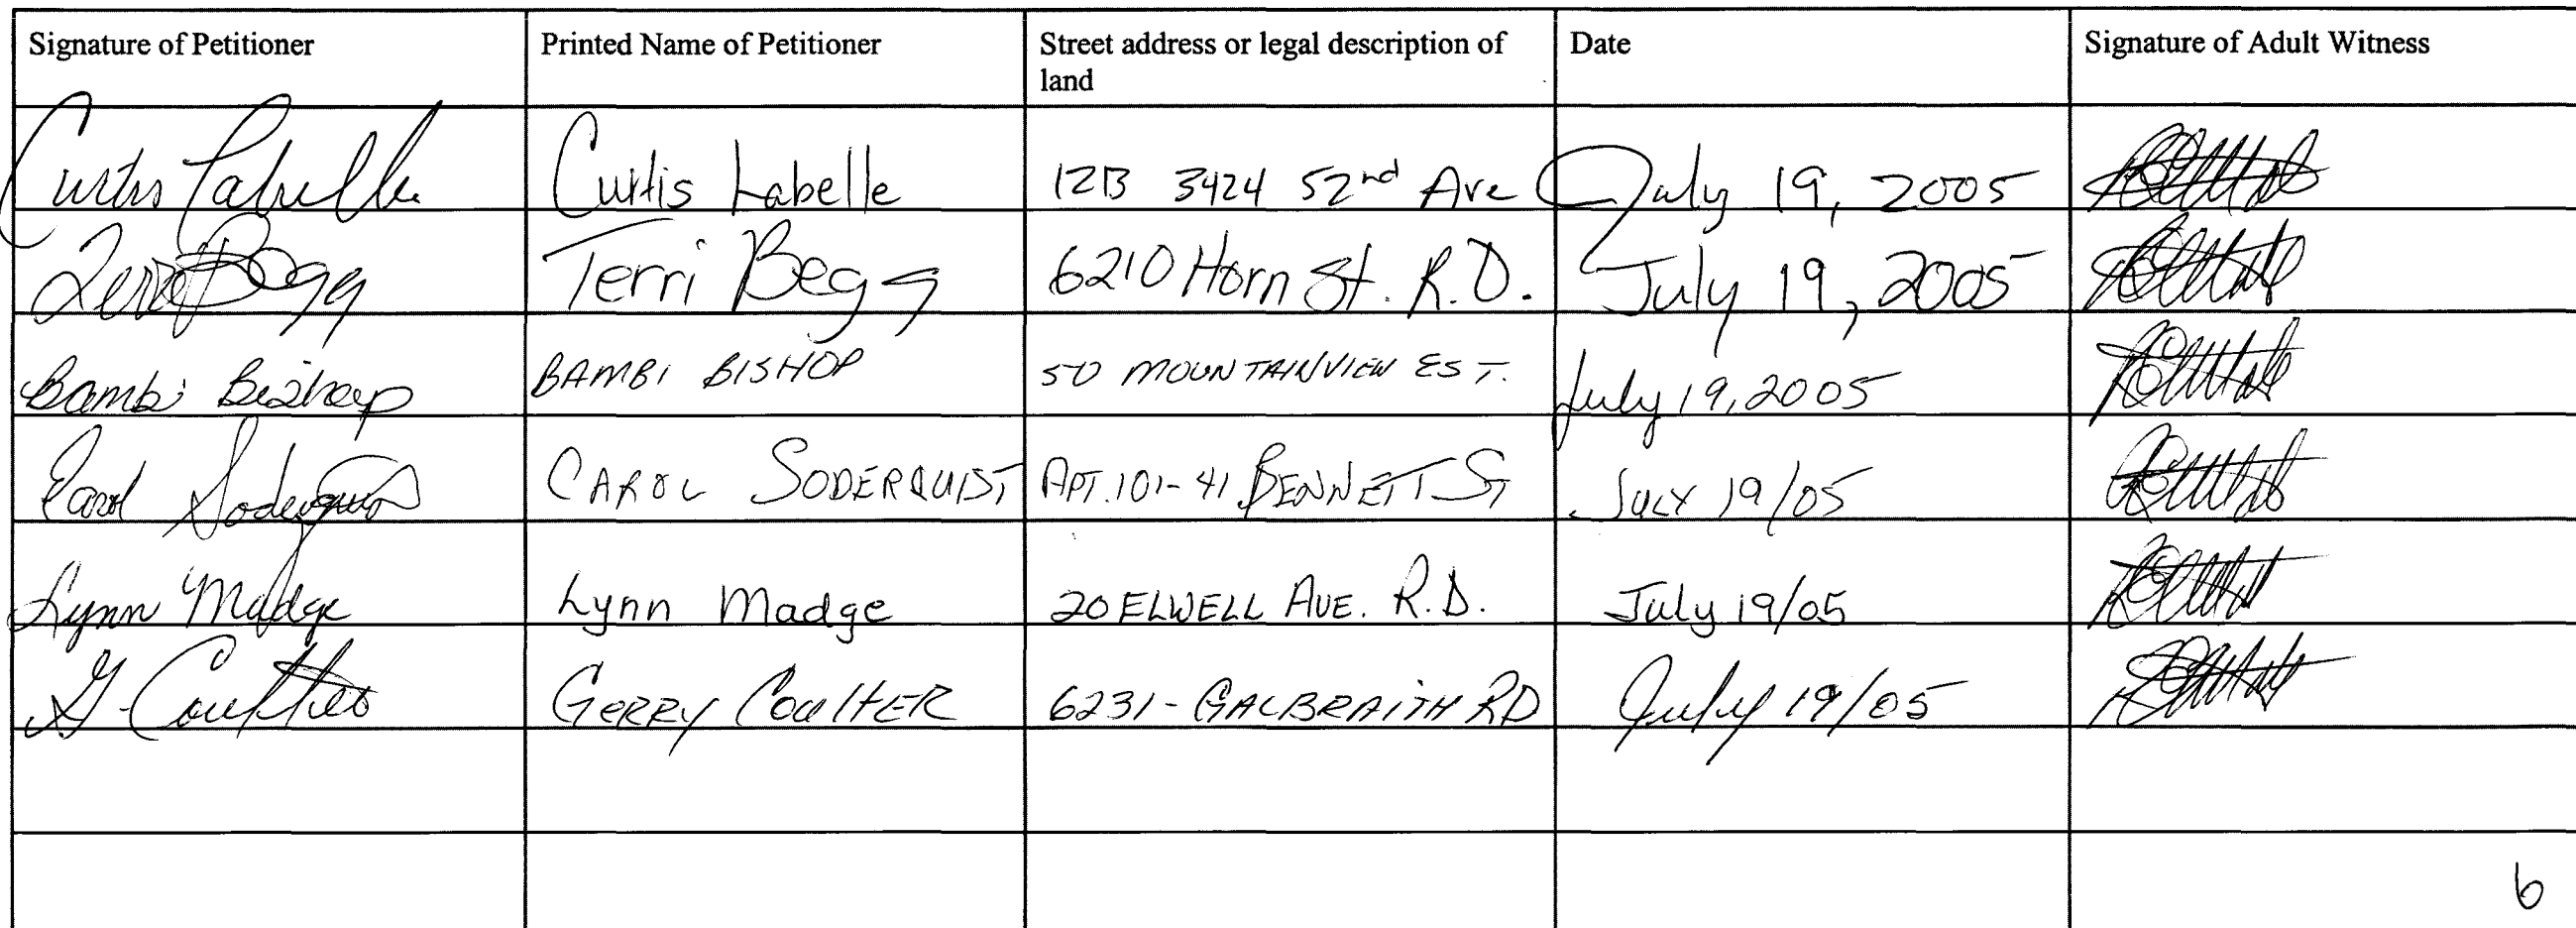 Signature of Petitioner Printed Name of Petitioner Street address or legal description of land Date Signature of Adult Witness
Curtis Labelle Curtis Labelle 12B 3424 52nd Ave July 19, 2005
Terri Begg Terri Begg 6210 Horn St. R.D. July 19, 2005
Bambi Bishop BAMBI BISHOP 50 MOUNTAINVIEW EST. July 19, 2005
Carol Soderquist CAROL SODERQUIST APT. 101-41 BENNETT ST JULY 19/05
Lynn Madge Lynn Madge 20 ELWELL AVE. R.D. July 19/05
G Coulter GERRY COULTER 6231 - GALBRAITH RD July 19/05
6